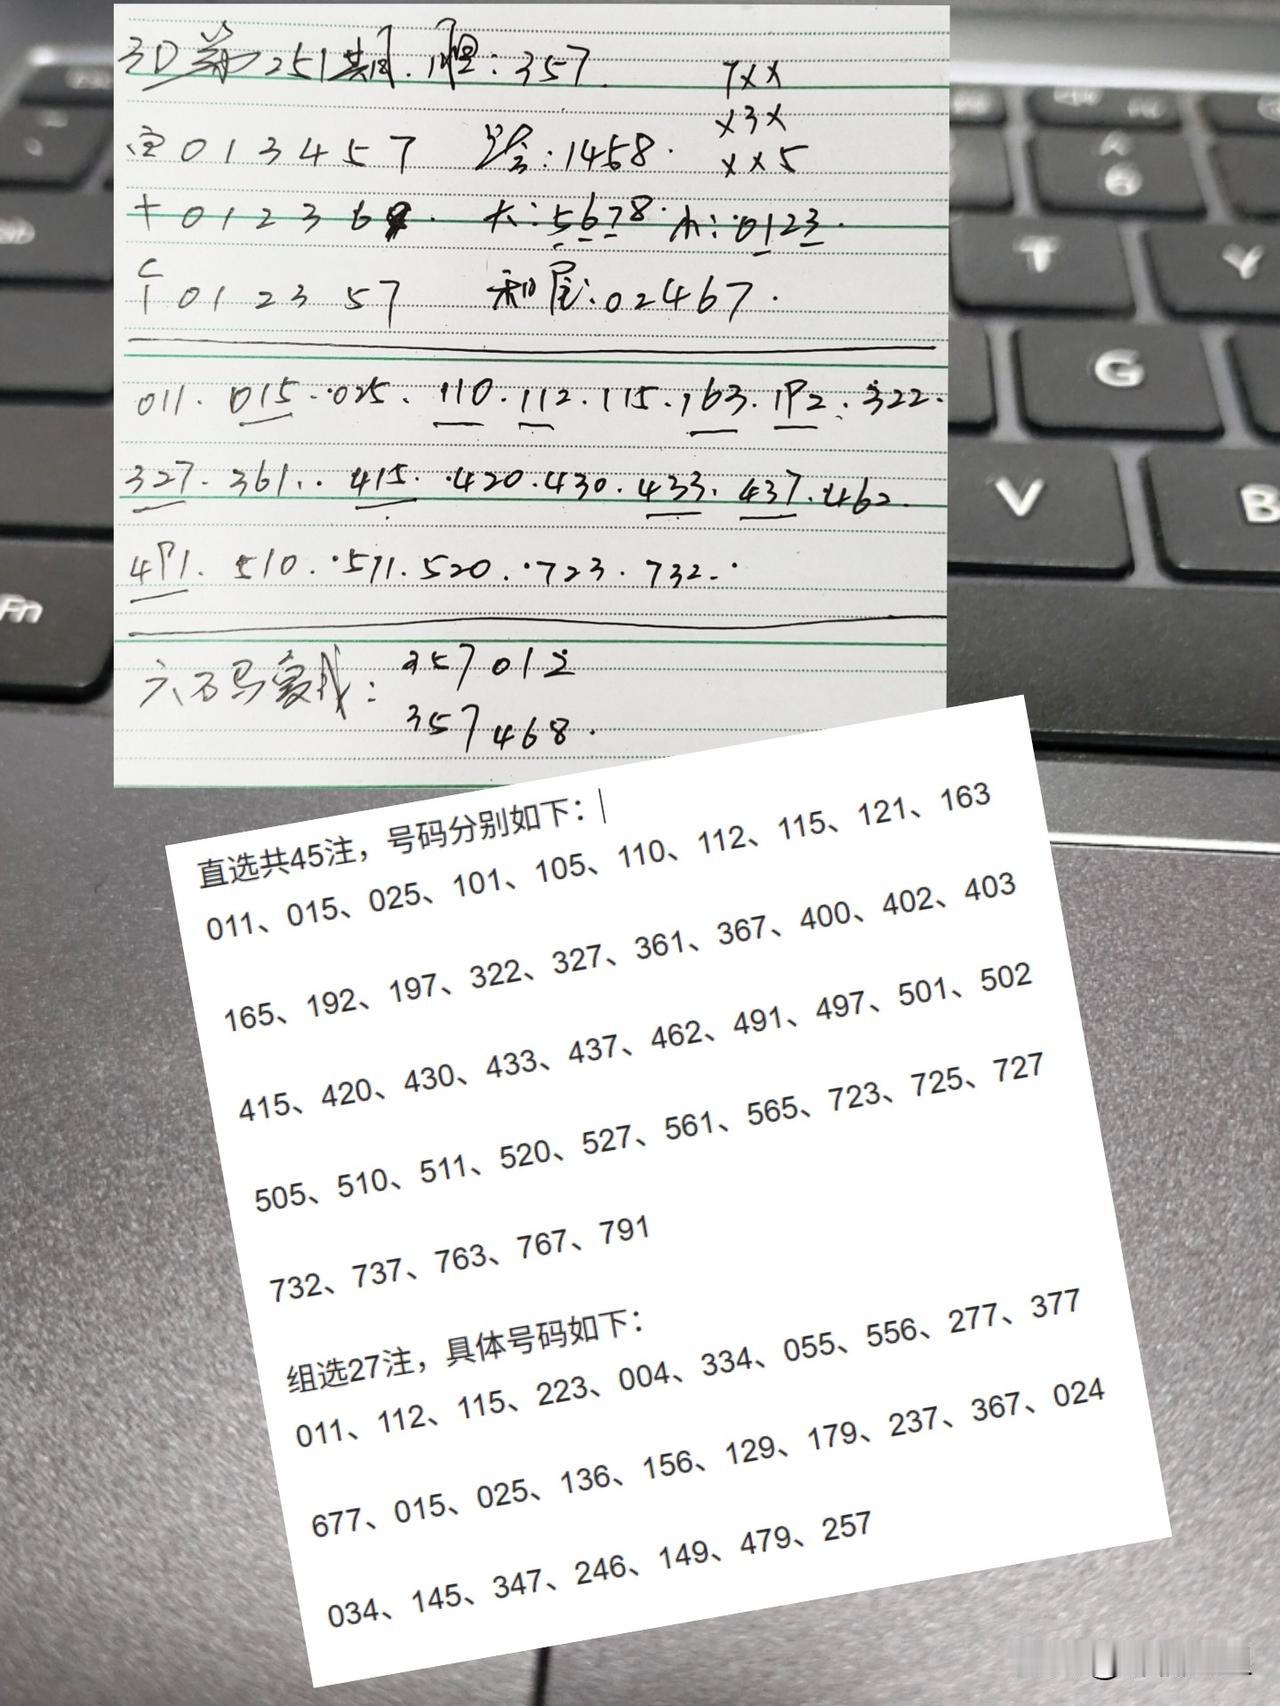 3D第251共享.胆:357. 7XX
X3X
百013457 跨:1458. XX5
十012369. 大:5678.小:0123.
个012357 和尾:02467.
011.015.025.110.112.115.163.192.322.
327.361.415.420.430.433.437.462.
491.510.511.520.723.732.
六码复式: 357012
357468.
直选共45注,号码分别如下:
011、015、025、101、105、110、112、115、121、163
165、192、197、322、327、361、367、400、402、403
415、420、430、433、437、462、491、497、501、502
505、510、511、520、527、561、565、723、725、727
732、737、763、767、791
组选27注,具体号码如下:
011、112、115、223、004、334、055、556、277、377
677、015、025、136、156、129、179、237、367、024
034、145、347、246、149、479、257
Fn
T
Y
G
V
B